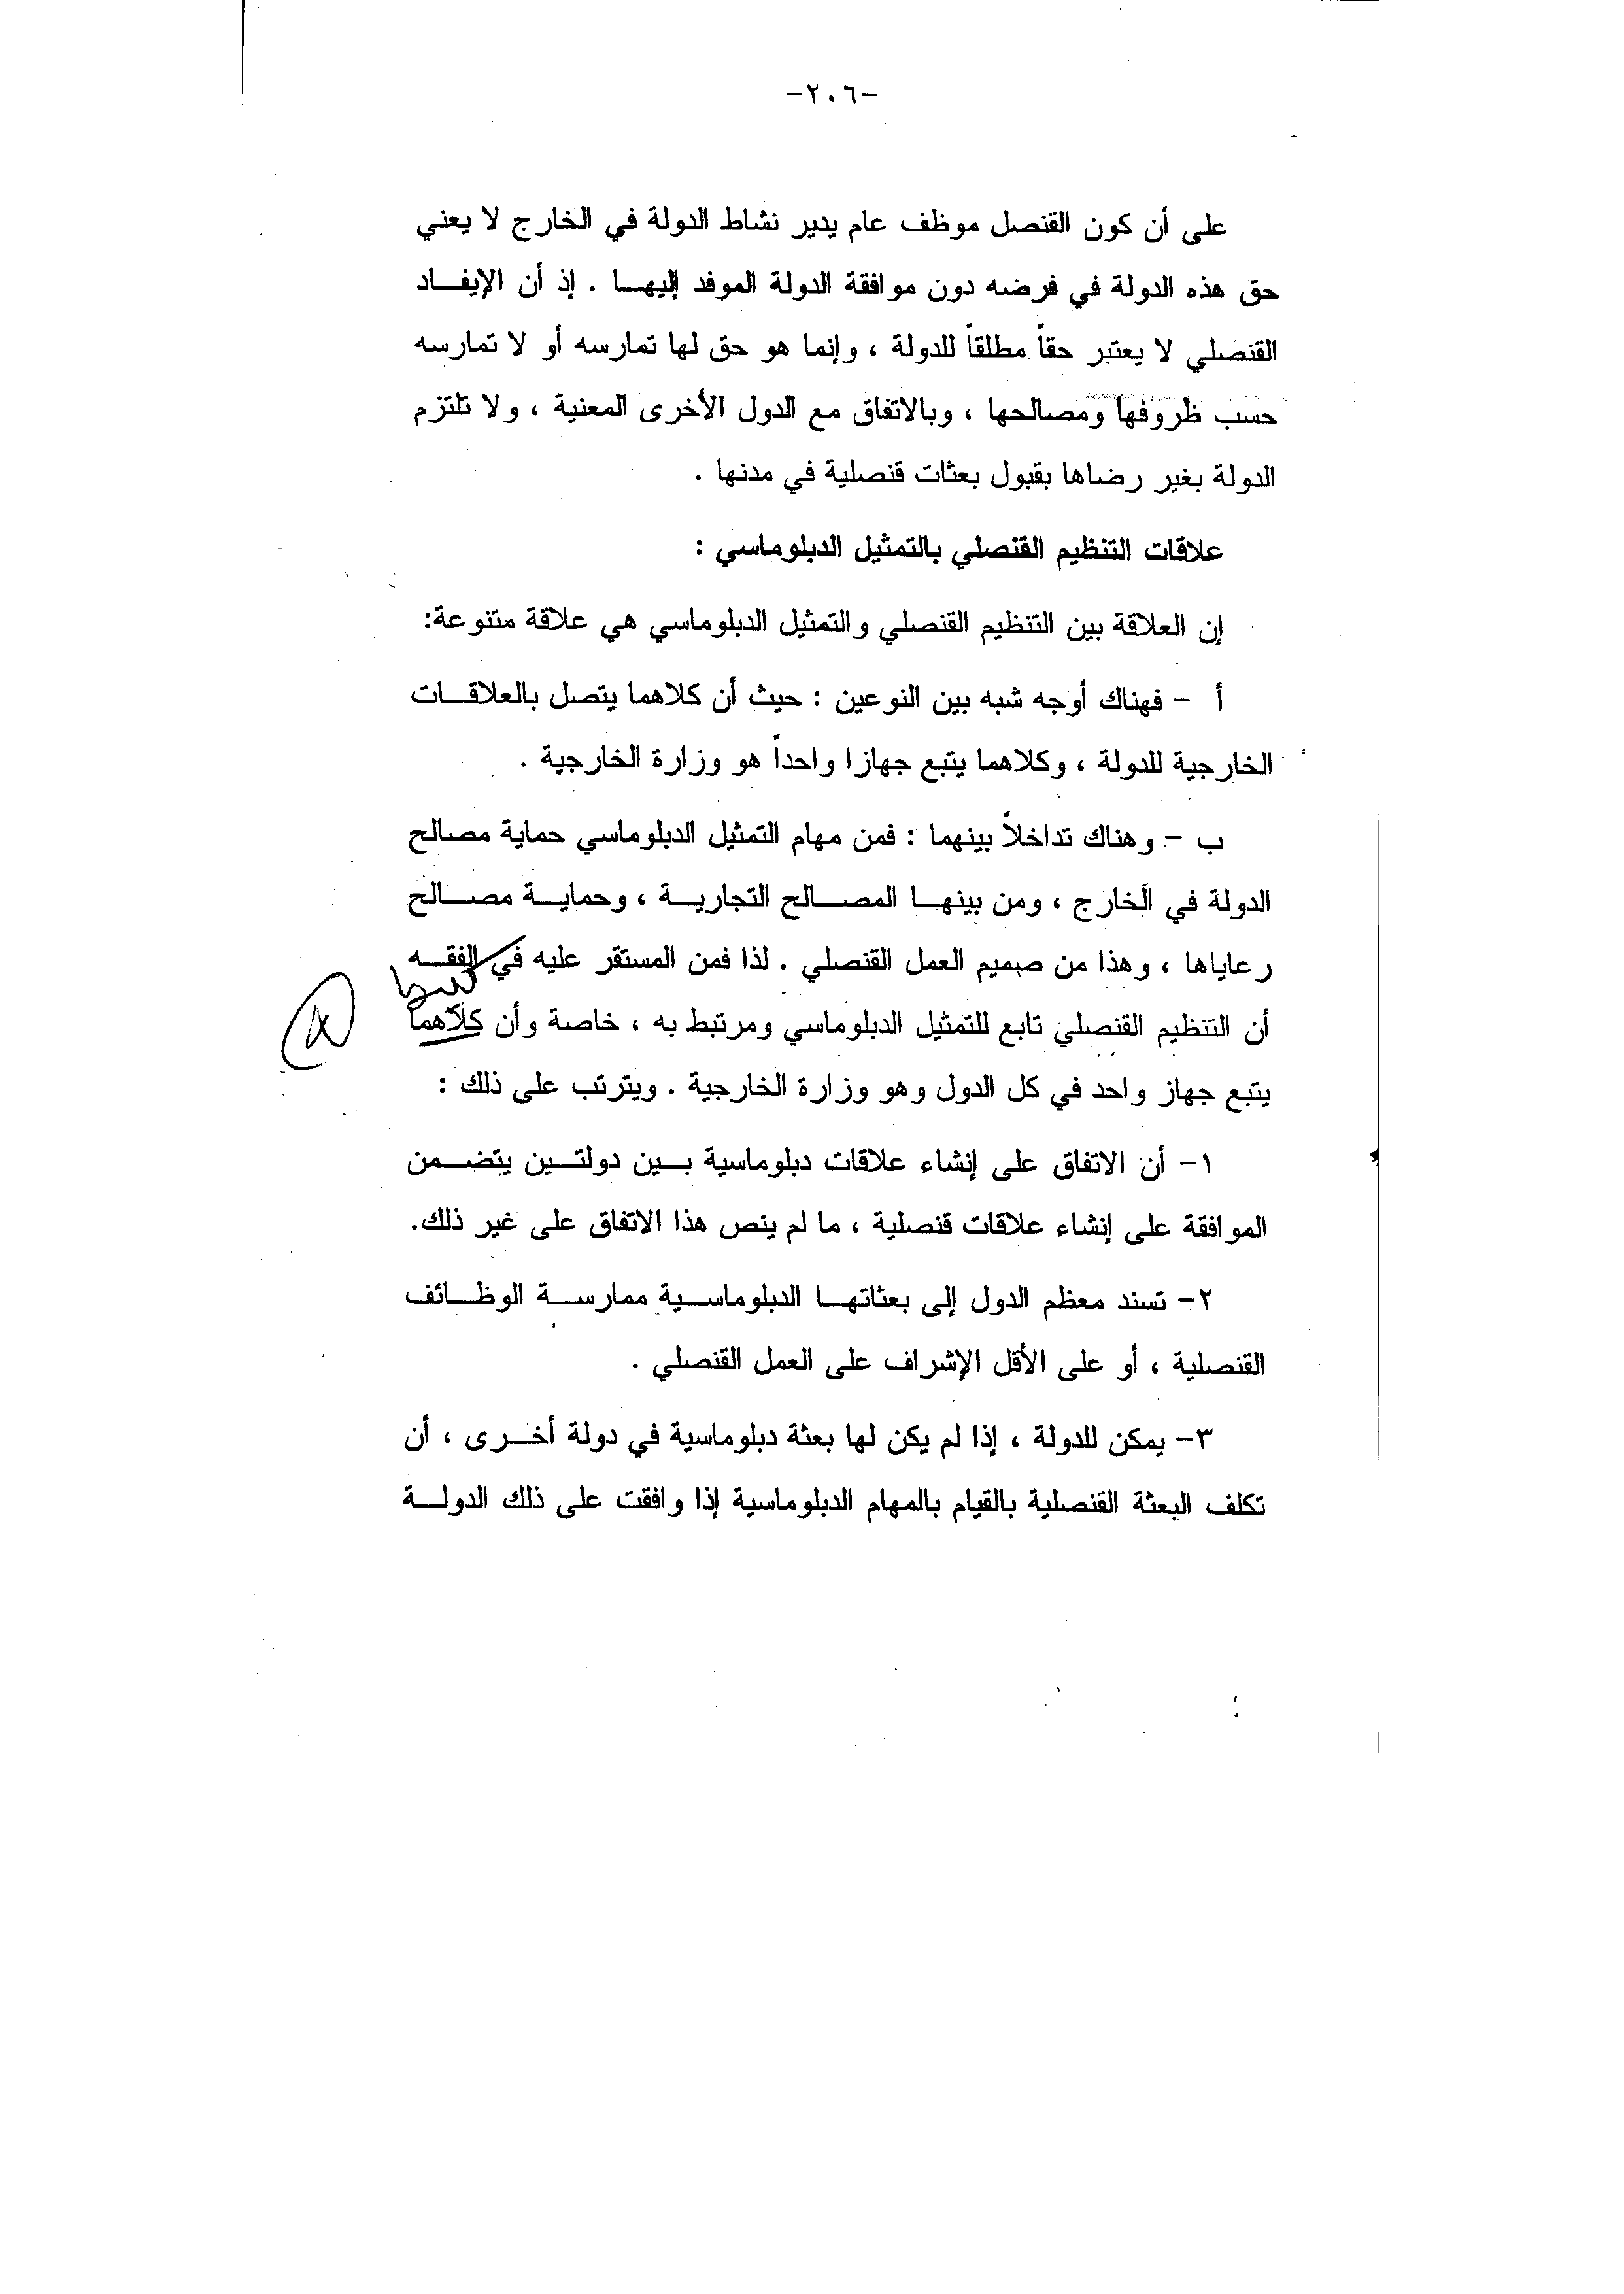 -٢٠٦-
على أن كون القنصل موظف عام يدير نشاط الدولة في الخارج لا يعني
حق هذه الدولة في فرضه دون موافقة الدولة الموفد إليهـــا . إذ أن الإيفـــاد
القنصلي لا يعتبر حقاً مطلقاً للدولة ، وإنما هو حق لها تمارسه أو لا تمارسه
حسب ظروفها ومصالحها ، وبالاتفاق مع الدول الأخرى المعنية ، ولا تلتزم
الدولة بغير رضاها بقبول بعثات قنصلية في مدنها .
علاقات التنظيم القنصلي بالتمثيل الدبلوماسي :
إن العلاقة بين التنظيم القنصلي والتمثيل الدبلوماسي هي علاقة متنوعة:
أ - فهناك أوجه شبه بين النوعين : حيث أن كلاهما يتصل بالعلاقـــات
الخارجية للدولة ، وكلاهما يتبع جهازا واحداً هو وزارة الخارجية .
ب - وهناك تداخلاً بينهما : فمن مهام التمثيل الدبلوماسي حماية مصالح
الدولة في الخارج ، ومن بينهـــا المصـــالح التجاريـــة ، وحمايـــة مصـــالح
رعاياها ، وهذا من صميم العمل القنصلي . لذا فمن المستقر عليه في الفقـــه
أن التنظيم القنصلي تابع للتمثيل الدبلوماسي ومرتبط به ، خاصة وأن كلاهما
يتبع جهاز واحد في كل الدول وهو وزارة الخارجية . ويترتب على ذلك :
١- أن الاتفاق على إنشاء علاقات دبلوماسية بـــين دولتـــين يتضـــمن
الموافقة على إنشاء علاقات قنصلية ، ما لم ينص هذا الاتفاق على غير ذلك.
٢- تسند معظم الدول إلى بعثاتهـــا الدبلوماســـية ممارســـة الوظـــائف
القنصلية ، أو على الأقل الإشراف على العمل القنصلي .
٣- يمكن للدولة ، إذا لم يكن لها بعثة دبلوماسية في دولة أخـــرى ، أن
تكلف البعثة القنصلية بالقيام بالمهام الدبلوماسية إذا وافقت على ذلك الدولـــة